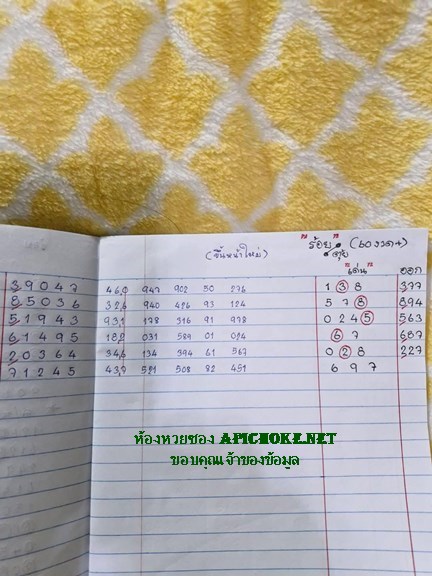 "ร้อย" (60 งวด+)
(ขึ้นหน้าใหม่)
"เด่น" ออก
39047 46,0 947 902 50 276 1 3 8 377
85036 32,6 940 426 93 124 5 7 8 894
51943 93,1 178 316 91 978 0 2 4 5 563
61495 18,2 031 589 01 024 6 7 687
20364 34,6 134 394 61 567 0 2 8 227
71245 43,7 521 508 82 451 6 9 7
ห้องหวยซอง APICHOKE.NET
ขอบคุณเจ้าของข้อมูล